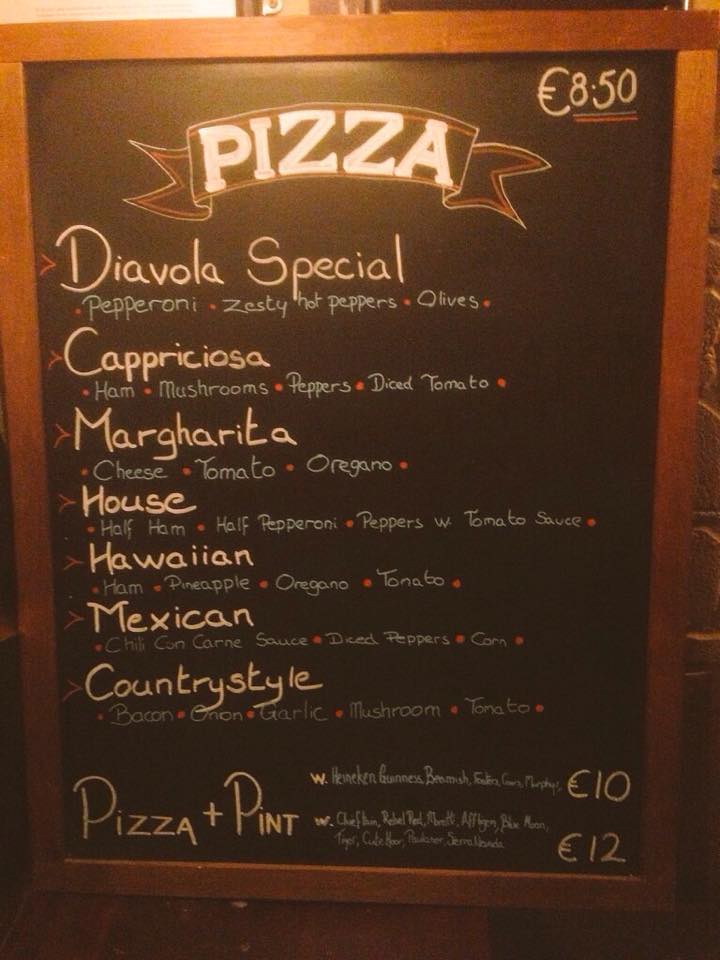 €8.50
PIZZA
Diavola Special
• Pepperoni • Zesty hot peppers • Olives •
Cappriciosa
• Ham • Mushrooms • Peppers • Diced Tomato •
Margharita
• Cheese • Tomato • Oregano •
House
• Half Ham • Half Pepperoni • Peppers w. Tomato Sauce •
Hawaiian
• Ham • Pineapple • Oregano • Tomato •
Mexican
• Chili Con Carne Sauce • Diced Peppers • Corn •
Countrystyle
• Bacon • Onion • Garlic • Mushroom • Tomato •
Pizza + Pint
w. Heineken, Guinness, Beamish, Fosters, Coors, Murphys, €10
w. Chieftain, Rebel Red, Moretti, Affligem, Blue Moon,
Tiger, Cute Hoor, Paulaner, Sierra Nevada
€12